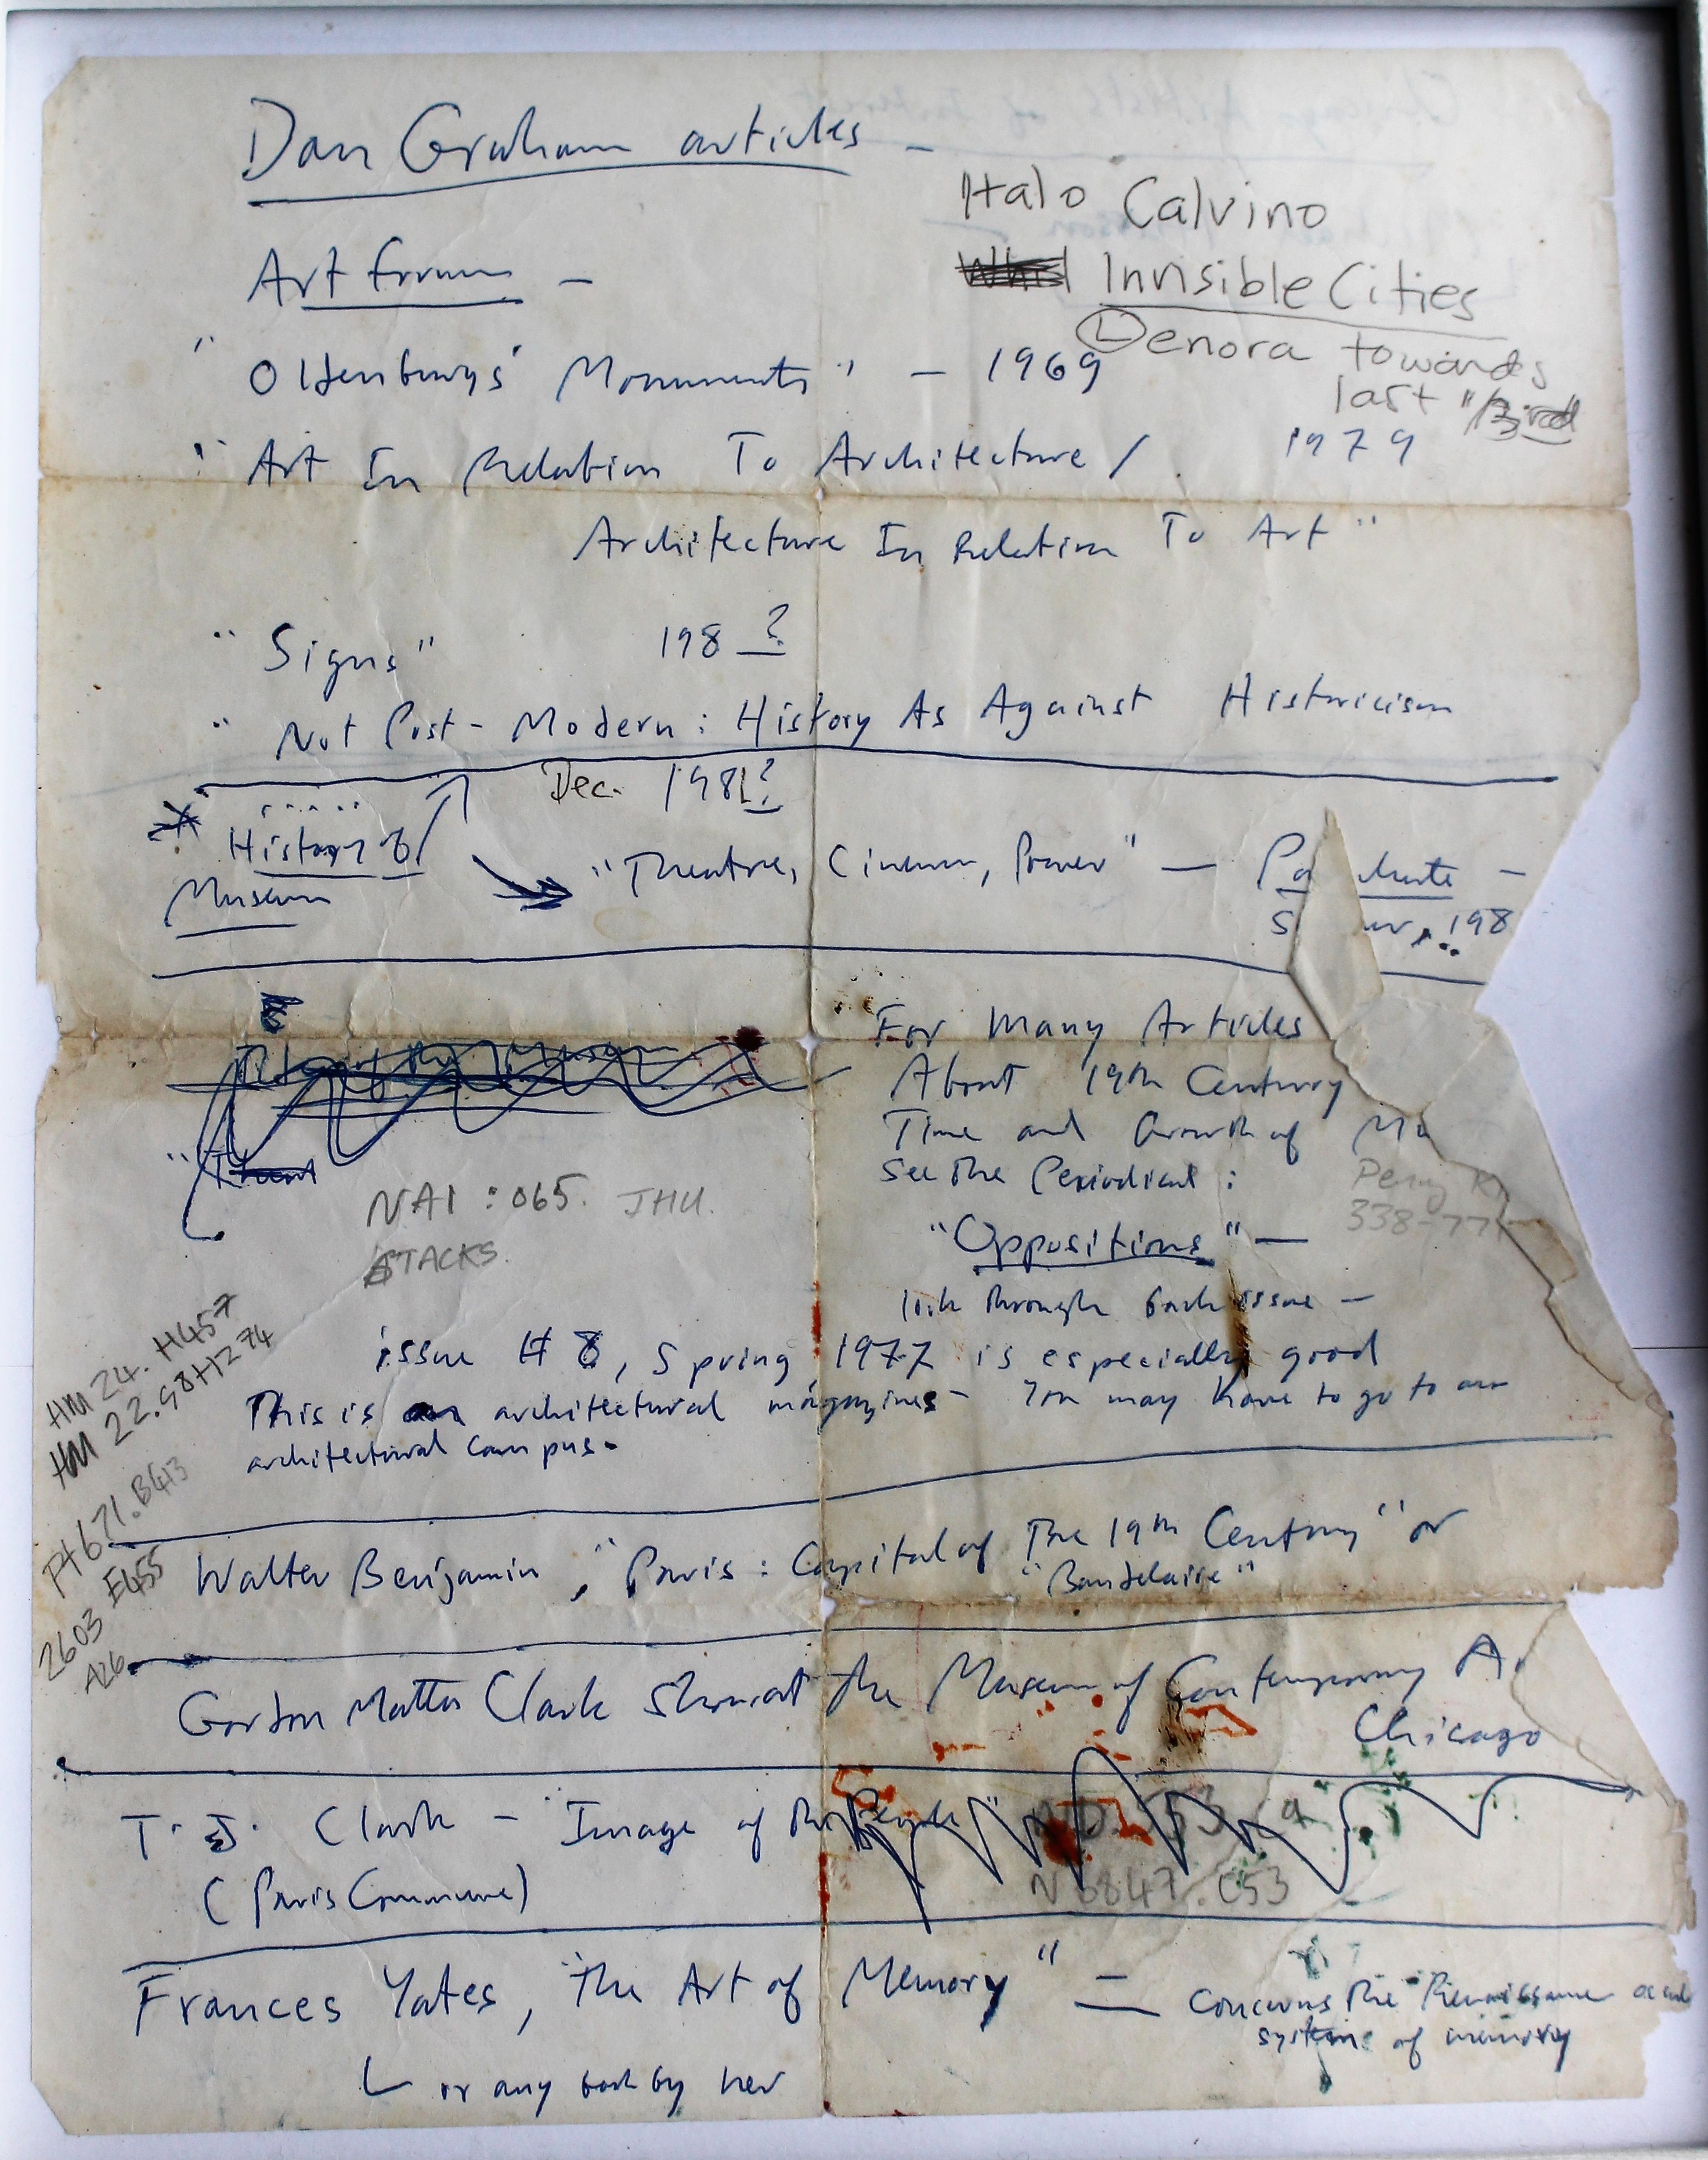 Dan Graham articles –
Italo Calvino
Art Forum –
Invisible Cities
Lenora towards
last
"Oldenburg's Monuments" – 1969
"Art In Relation To Architecture / 1979
Architecture In Relation To Art"
"Signs" 198?
" Not Post-Modern: History As Against Historicism
Dec. 1981?
History of
Museum
"Theatre, Cinema, Power" – Pa chute –
S er, 198
For Many Articles
About 19th Century
Time and Growth of Mu
See The Periodical:
Perry
338-77
NA1 : 065. JHU.
STACKS.
"Oppositions" –
look through back issue –
issue # 8, Spring 1977 is especially good
This is an architectural magazines – You may have to go to an
architectural campus.
HM 24. H457
HM 22.G8H1274
PT671.B413
2603 .E455
A26
Walter Benjamin, "Paris: Capital of The 19th Century" or
"Baudelaire"
Gordon Matta Clark Show at the Museum of Contemporary A
Chicago
T. J. Clark – "Image of the People"
(Paris Commune)
N6847.C53
Frances Yates, "The Art of Memory" – concerns the Renaissance
systems of memory
or any book by her